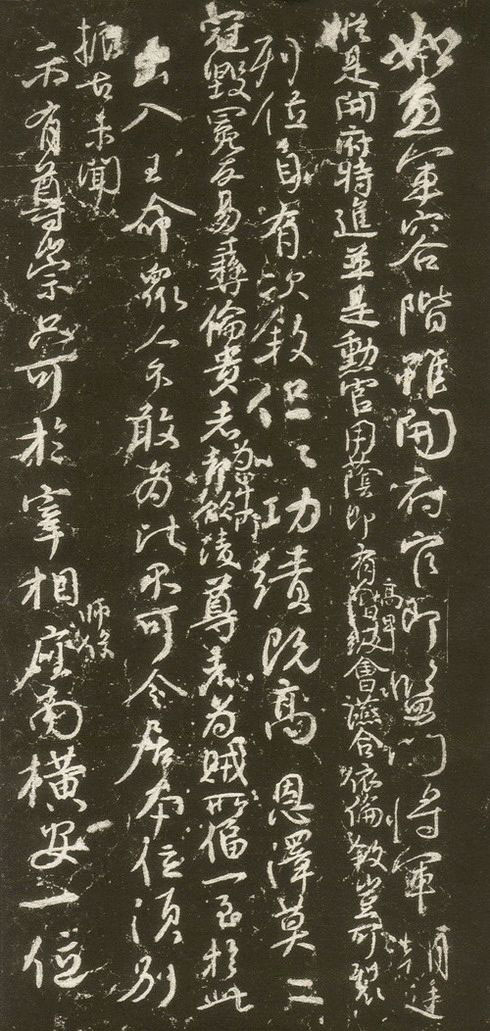 如魚軍容階雖開府官即監門將軍朝廷
縱是開府特進並是勳官用蔭即有高卑會讌合依倫敘豈可裂
列位自有次敘但以功績既高恩澤莫二
冠毀冕反易彝倫貴者為卑所凌尊者為賊所偪一至於此
出入王命眾人不敢為比不可令居本位須別
振古未聞
示有尊崇只可於宰相師保座南橫安一位